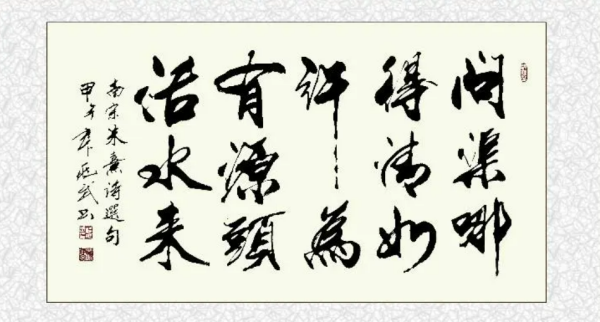 問渠哪
得清如
許為
有源頭
活水来
南宋朱熹詩選句
甲午武书